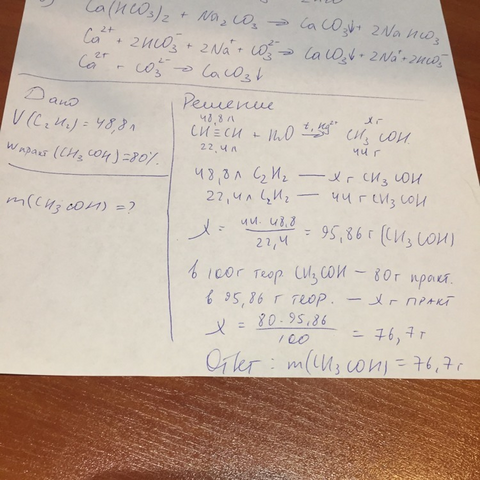 Ca(HCO₃)₂ + Na₂CO₃ → CaCO₃↓ + 2NaHCO₃
Ca²⁺ + 2HCO₃⁻ + 2Na⁺ + CO₃²⁻ → CaCO₃↓ + 2Na⁺ + 2HCO₃⁻
Ca²⁺ + CO₃²⁻ → CaCO₃↓
Дано
V(C₂H₂) = 48,8л
Wпракт(CH₃COH) = 80%.
m(CH₃COH) = ?
Решение
48,8л xг
CH≡CH + H₂O t, Hg²⁺→ CH₃COH
22,4л 44г
48,8л C₂H₂ — xг CH₃COH
22,4л C₂H₂ — 44г CH₃COH
x = 44·48,8 / 22,4 = 95,86г (CH₃COH)
в 100г теор. CH₃COH – 80г практ.
в 95,86г теор. — xг практ
x = 80·95,86 / 100 = 76,7г
Ответ: m(CH₃COH) = 76,7г